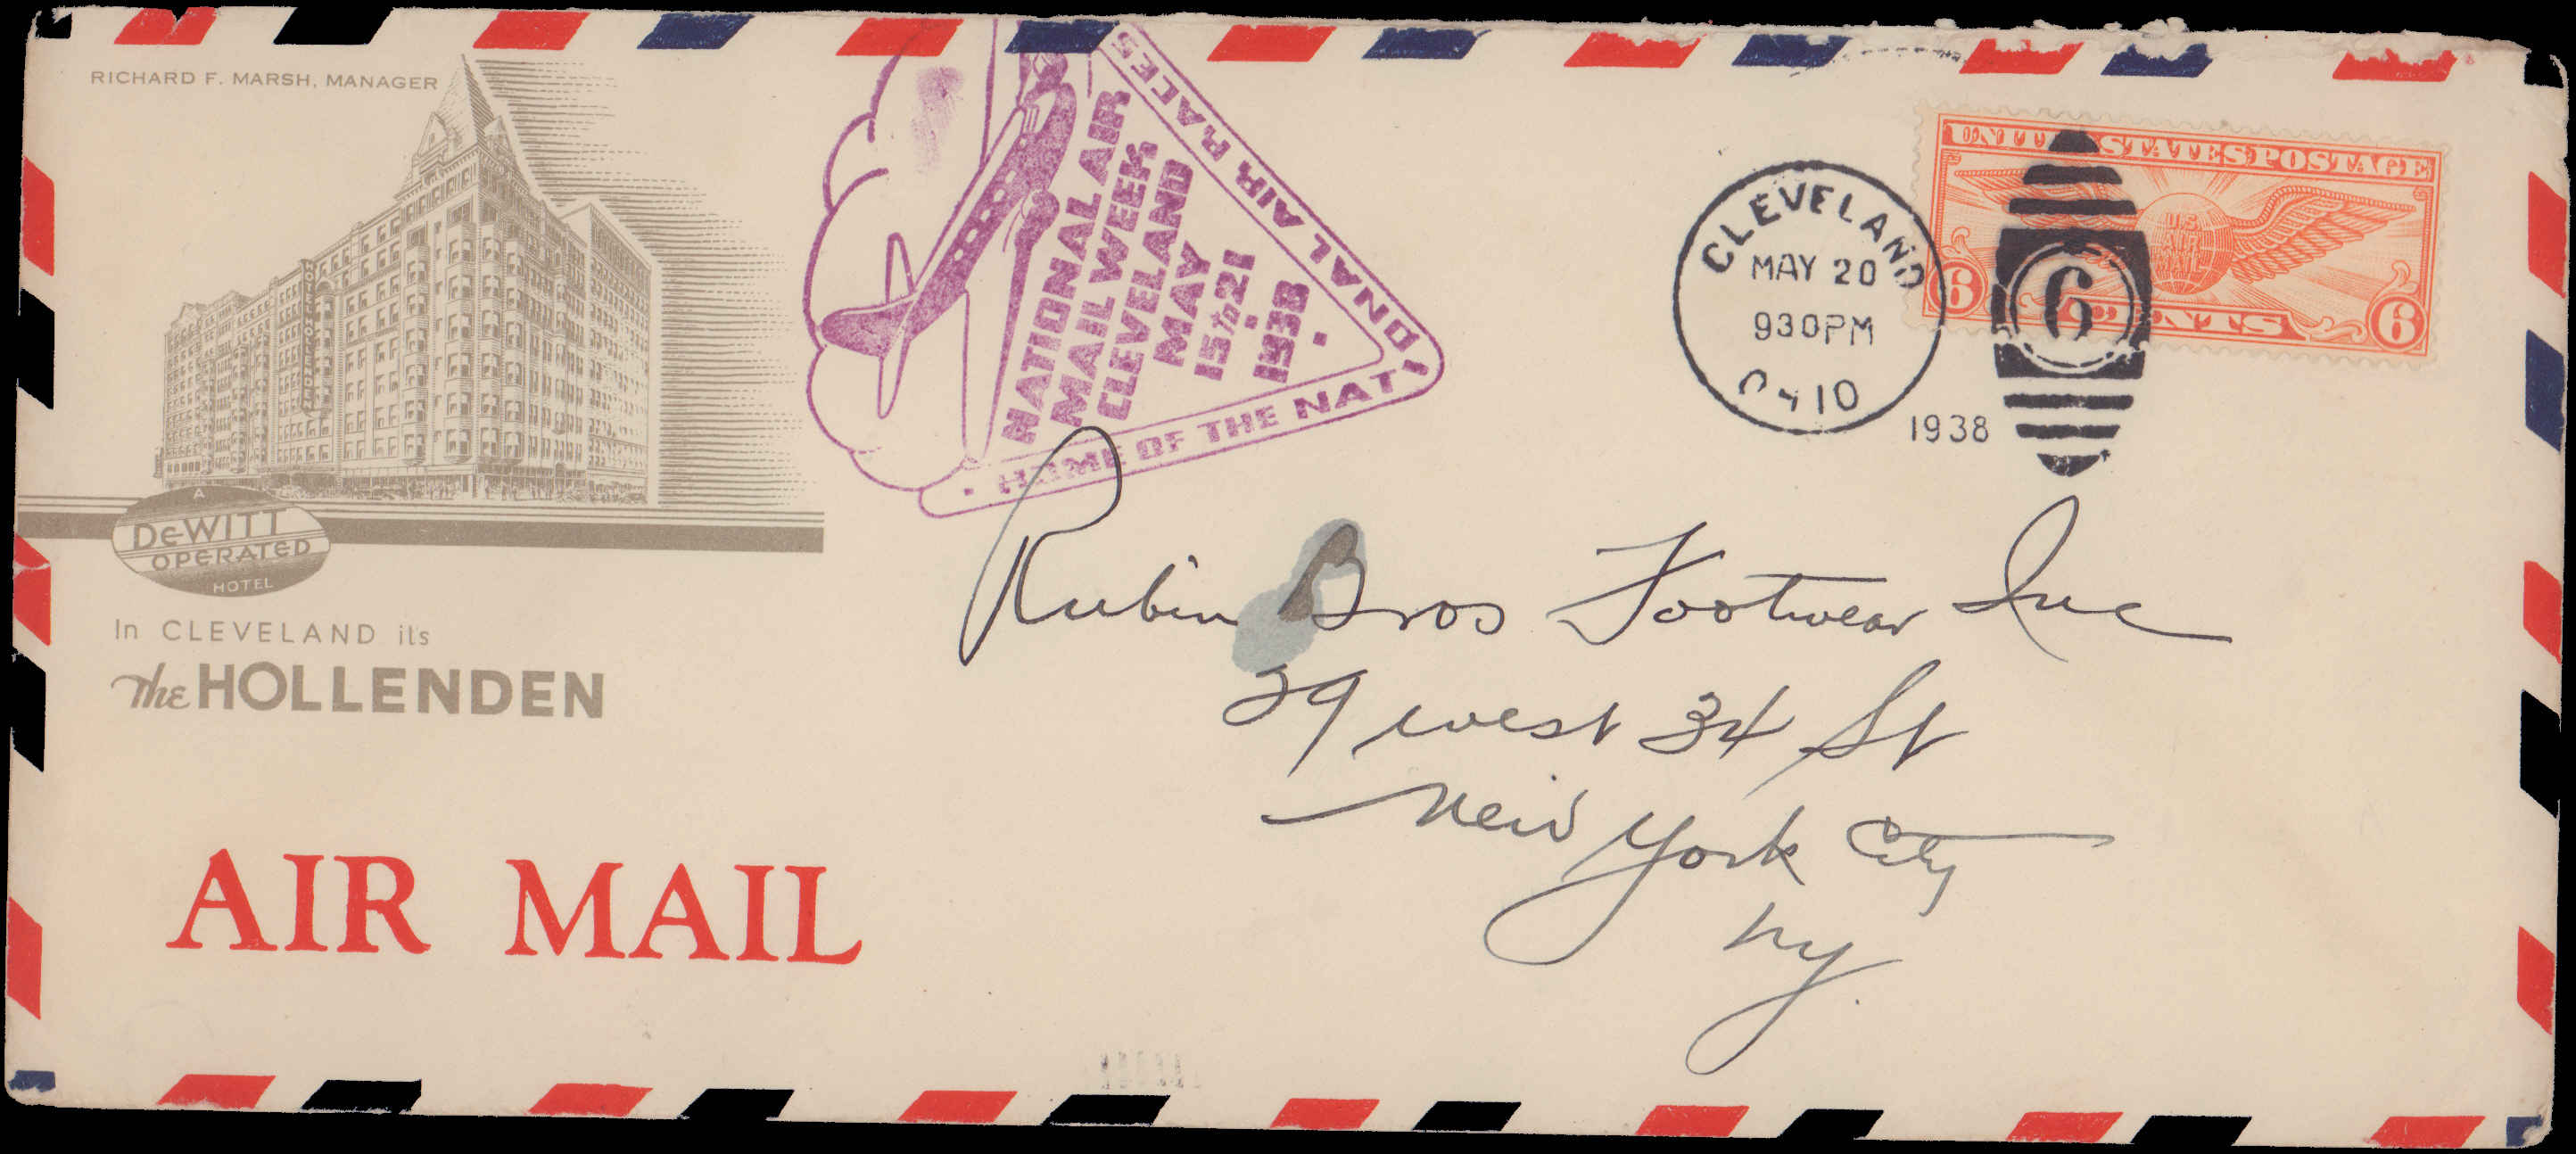 RICHARD F. MARSH, MANAGER
A
DeWITT
OPERATED
HOTEL
In CLEVELAND it's
The HOLLENDEN
AIR MAIL
NATIONAL AIR
MAIL WEEK
CLEVELAND
MAY
15 to 21
1938
HOME OF THE NATIONAL AIR RACES
CLEVELAND
MAY 20
930PM
OHIO
1938
6
UNITED STATES POSTAGE
U.S.
AIR
MAIL
6 CENTS 6
Rubin Bros Footwear Inc
39 west 34 St
New York City
ny